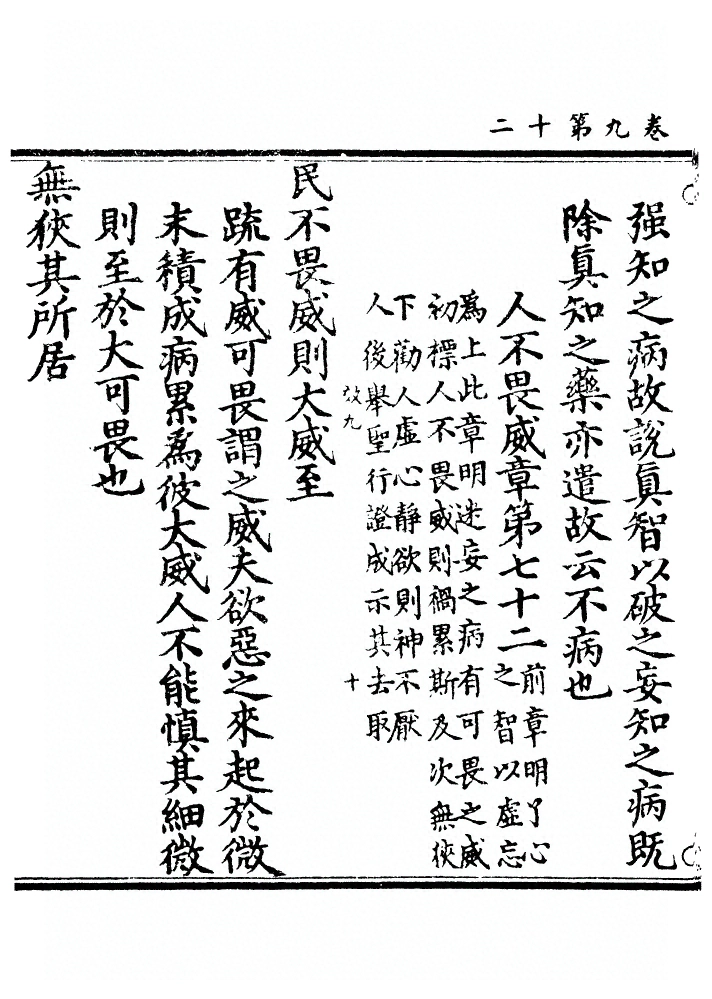 卷九第十二
强知之病故說眞智以破之妄知之病既
除眞知之藥亦遣故云不病也
人不畏威章第七十二前章明了心
之智以虛忘
爲上此章明迷妄之病有可畏之威
初標人不畏威則禍累斯及次無狹
下勸人虛心靜欲則神不厭
人後舉聖行證成示其去取
故九
十
民不畏威則大威至
䟽有威可畏謂之威夫欲惡之來起於微
末積成病累爲彼大威人不能慎其細微
則至於大可畏也
無狹其所居